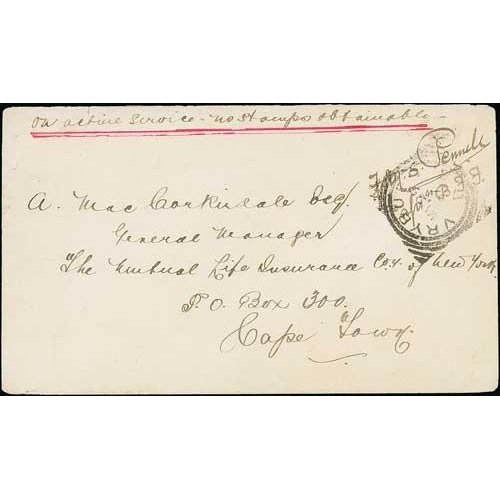 on active service - no stamps obtainable
VRYBU
A. Mac Corkindale Esq
General Manager
The Mutual Life Insurance Coy. of New York
P. O. Box 300.
Cape Town